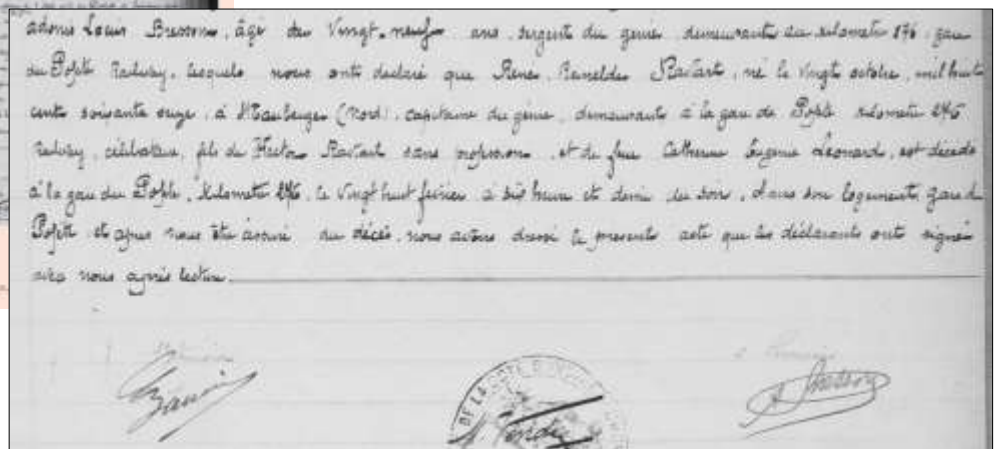 adonis Louis Bressons, âgé de Vingt-neuf ans, sergent du génie demeurants au kilometre 176, gare
du Popli Railway, lesquels nous ont declaré que René, Reneldes Ravart, né le vingt octobre, mil huit
cents soixante seize, à Maubeuge (Nord), capitaine du génie, demeurants à la gare de Popli kilometre 276
railway, célibataire, fils de Hector Ravart sans profession, et de feue Catherine Eugenie Leonard, est décédé
à la gare du Popli, kilometre 276, le vingt huit fevrier à six heure et demie du soir, dans son logement, gare de
Popli et apres nous être assuré du décès, nous avons dressé le present acte que les déclarants ont signés
avec nous après lecture.
DE LA COTE D'IVOIRE